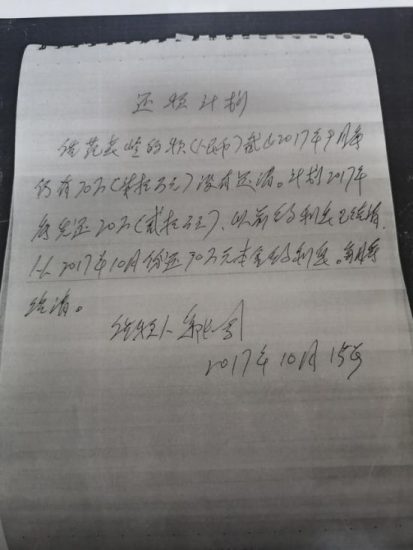 还款计划
借范长岭的款(人民币)截止2017年9月底
仍有70万(柒拾万元)没有还清。计划2017年
底先还20万(贰拾万元)，以前的利息已结清，
从2017年10月份还70万元本金的利息。每月
结清。
借款人
2017年10月15号